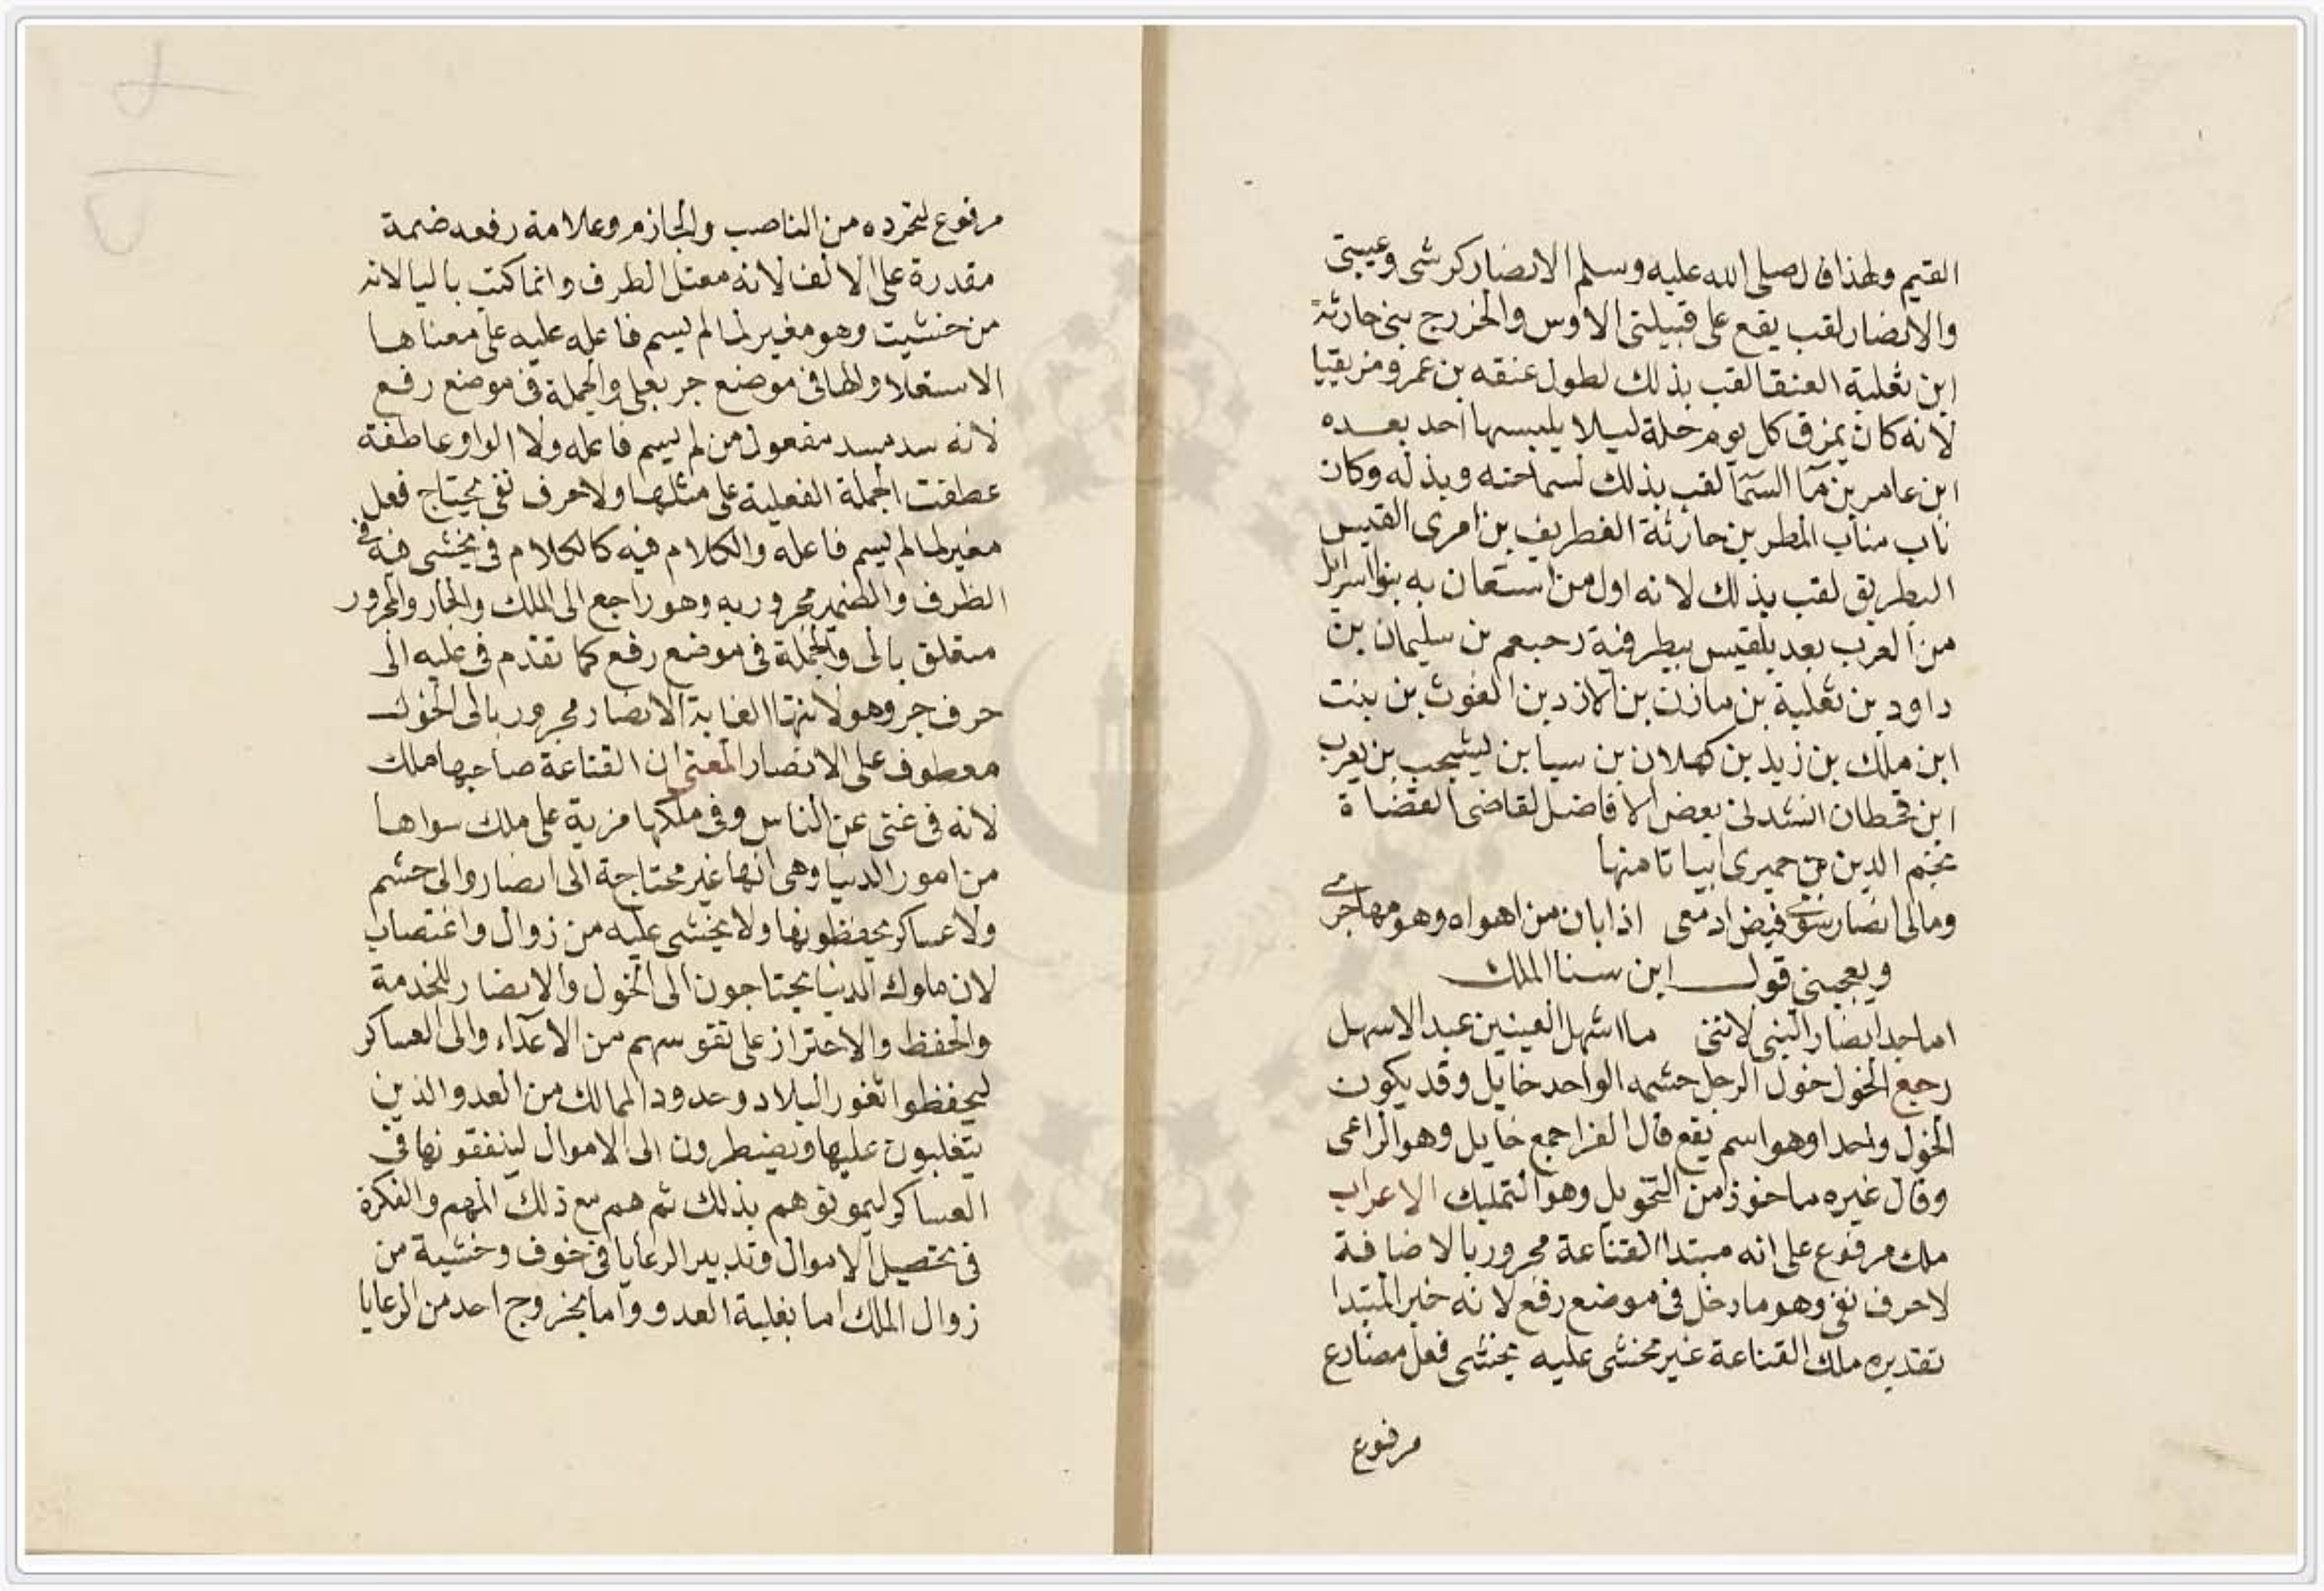 القيم ولهذا قال صلى الله عليه وسلم الانصار كرشى وعيبتى
والانصار لقب يقع على قبيلتى الاوس والخزرج بنى حارثة
ابن ثعلبة العنقا لقب بذلك لطول عنقه بن عمرو مزيقيا
لانه كان يمزق كل يوم حلة ليلا يلبسها احد بعده
ابن عامر بن مآ السمآ لقب بذلك لسماحته وبذله وكان
ناب مناب المطر بن حارثة الغطريف بن امرى القيس
البطريق لقب بذلك لانه اول من استعان به بنوا اسرائل
من العرب بعد بلقيس ببطرفية رحبعم بن سليمان بن
داود بن ثعلبة بن مازن بن الازد بن الغوث بن بنت
ابن ملك بن زيد بن كهلان بن سبا بن يشجب بن يعرب
ابن قحطان انشدنى بعض الافاضل لقاضى القضاة
نجم الدين بن حميرى ابياتا منها
ومالى انصار سوى فيض ادمعى اذا بان من اهواه وهو مهاجرى
ويعجبنى قول ابن سنا الملك
اما احد ابصار النبى لاننى ما اشهل العينين عبد الاسهل
رجع الخول خول الرجل حشمه الواحد خايل وقد يكون
الخول واحدا وهو اسم يقع قال الفرا جمع خايل وهو الراعى
وقال غيره ماخوذ من التخويل وهو التمليك الاعراب
ملك مرفوع على انه مبتدا القناعة مجرور بالاضافة
لا حرف نفى وهو ما دخل فى موضع رفع لانه خبر المبتدا
تقديره ملك القناعة غير مخشى عليه يخشى فعل مضارع
مرفوع
مرفوع لتجرده من الناصب والجازم وعلامة رفعه ضمة
مقدرة على الالف لانه معتل الطرف وانما كتب باليا لانه
من خشيت وهو مغير لما لم يسم فاعله عليه على معناها
الاستعلا والها فى موضع جر بعلى والجملة فى موضع رفع
لانه سد مسد مفعول من لم يسم فاعله ولا الواو عاطفة
عطفت الجملة الفعلية على مثلها ولا حرف نفى يحتاج فعل
مغير لما لم يسم فاعله والكلام فيه كالكلام فى يخشى فيه فى
الظرف والضمير مجرور به وهو راجع الى الملك والجار والمجرور
متعلق بالى والجملة فى موضع رفع كما تقدم فى عليه الى
حرف جر وهو لانتها الغاية الانصار مجرور بالى الخول
معطوف على الانصار المعنى ان القناعة صاحبها ملك
لانه فى غنى عن الناس وفى ملكها مزية على ملك سواها
من امور الدنيا وهى انها غير محتاجة الى انصار والى حشم
ولا عساكر يحفظونها ولا يخشى عليه من زوال واغتصاب
لان ملوك الدنيا يحتاجون الى الخول والانصار للخدمة
والحفظ والاحتراز على نفوسهم من الاعدآء والى العساكر
ليحفظوا ثغور البلاد وحدود الممالك من العدو الذين
يتغلبون عليها ويضطرون الى الاموال لينفقونها فى
العساكر ليمونوهم بذلك ثم هم مع ذلك المهم والفكرة
فى تحصيل الاموال وتدبير الرعايا فى خوف وخشية من
زوال الملك اما بغلبة العدو واما بخروج احد من الرعايا